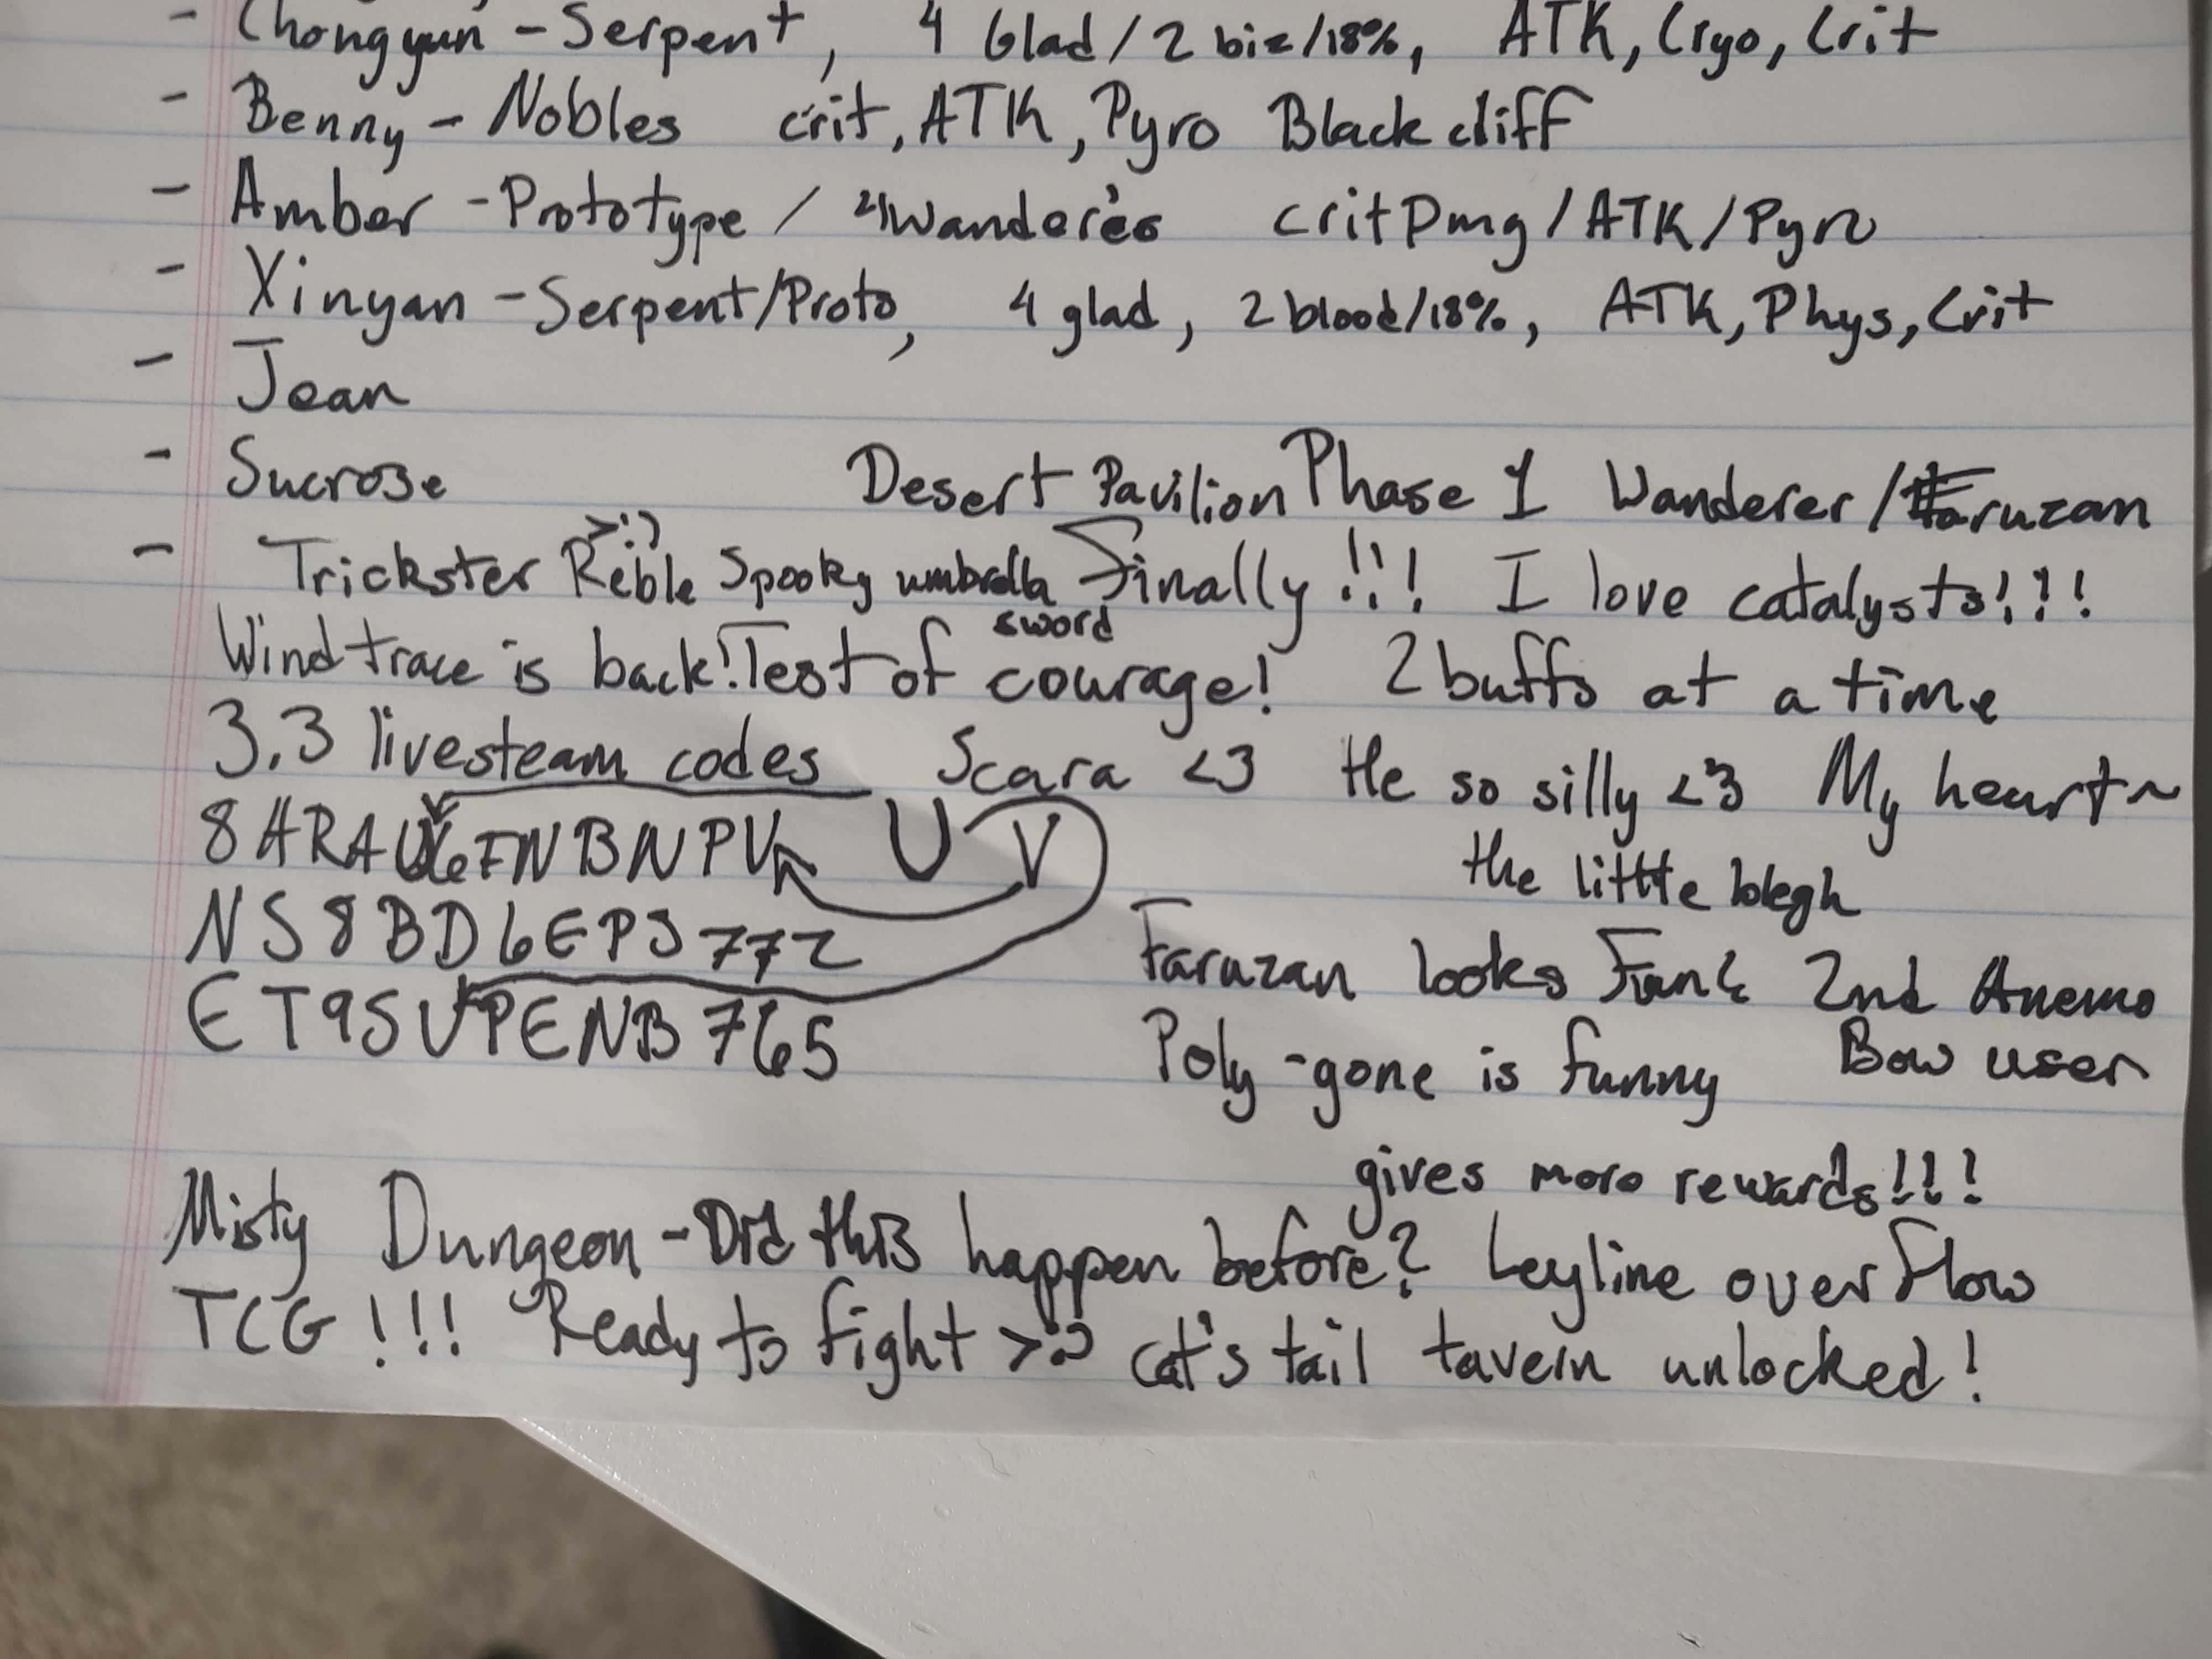 - Chongyun - Serpent, 4 Glad / 2 bliz/18%, ATK, Cryo, Crit
- Benny - Nobles crit, ATK, Pyro Blackcliff
- Amber - Prototype / 4 Wanderer's critDmg / ATK / Pyro
- Xinyan - Serpent/Proto, 4 glad, 2 blood/18%, ATK, Phys, Crit
- Jean
- Sucrose Desert Pavilion Phase 1 Wanderer / Faruzan
>:)
- Trickster Reble Spooky umbrella Finally!!! I love catalysts!!!
sword
Windtrace is back! Test of courage! 2 buffs at a time
3.3 livesteam codes Scara <3 He so silly <3 My heart~
8ARAU FNBNPV U V
the little blegh
NS8BD6EPS77Z
Faruzan looks Fun & 2nd Anemo
ET9SUPENB765
Poly-gone is funny Bow user
gives more rewards!!!
Misty Dungeon - Did this happen before? Leyline overflow
TCG!!! Ready to fight >:) cat's tail tavern unlocked!